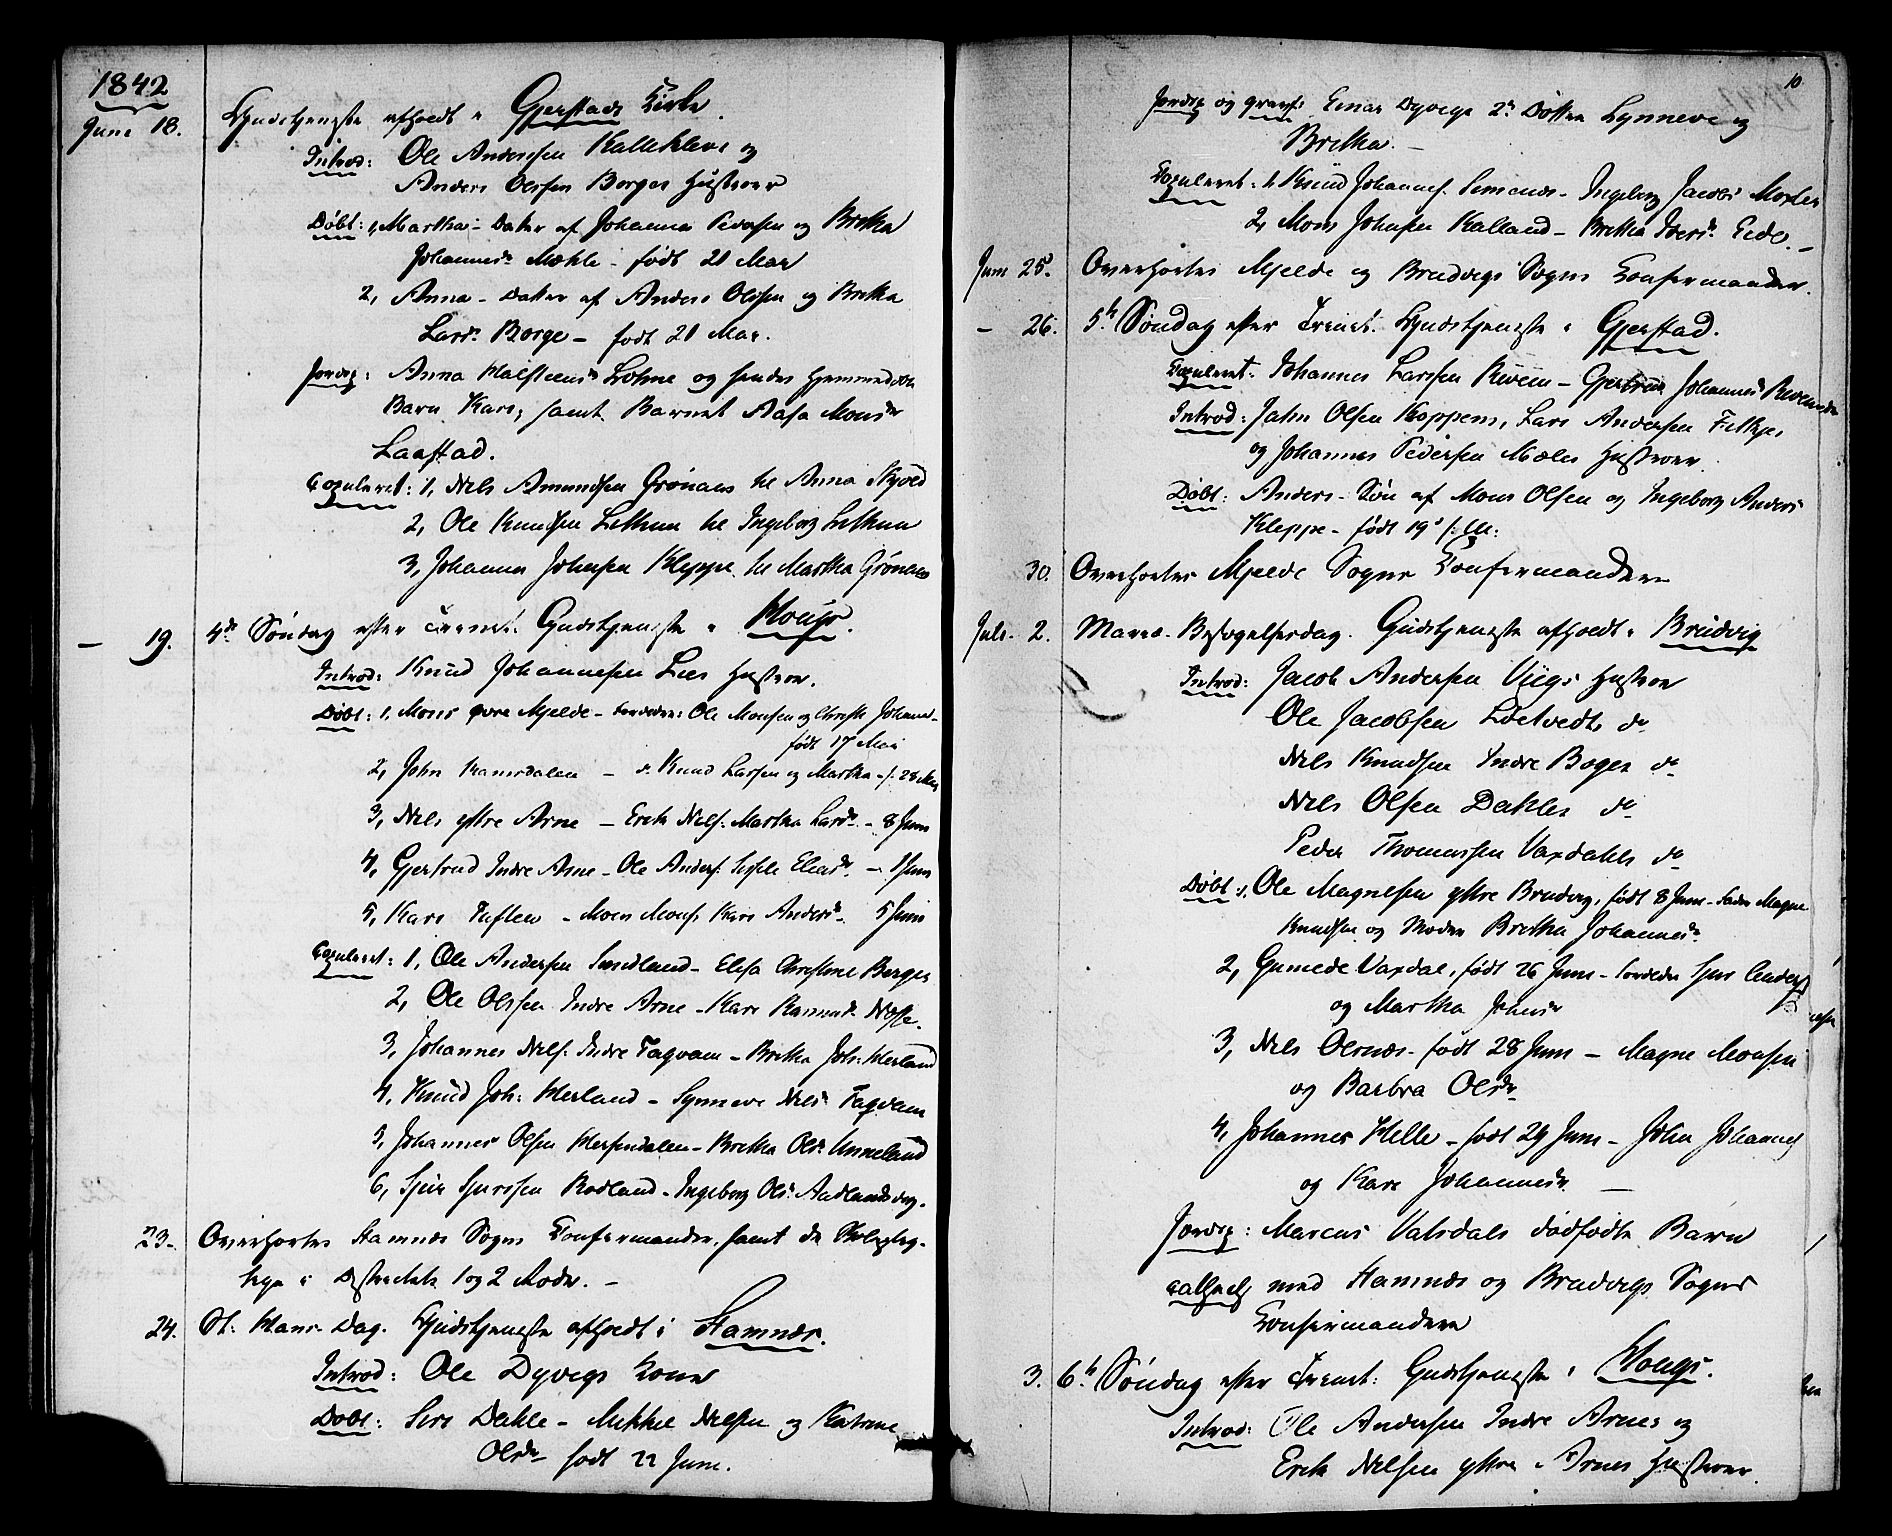 1842
Juni 18. Gudstjeneste afholdt i Gjerstads Kirke.
Introd: Ole Andersen Kalleklevs og
Anders Olsen Borges Hustroer
Døbt: 1, Martha - Datter af Johannes Pedersen og Britha
Johannesdr Mæhle - født 21 Mai
2, Anna - Datter af Anders Olsen og Britha
Larsdr Borge - født 21 Mai.
Jordsp: Anna Halsteensdr Løhne og hendes hjemmedøbte
Barn Kari, samt Barnet Aasa Monsdr
Laastad.
Copuleret: 1, Nils Amundsen Grønaas til Anna Skjold
2, Ole Knudsen Lethun til Ingeborg Lethun
3, Johannes Johnsen Kleppe til Martha Grønaas
— 19. 4de Søndag efter Trinit. Gudstjeneste i Hougs.
Introd: Knud Johannesen Lies Hustroe.
Døbt: 1, Mons øvre Mjelde - Forældre: Ole Monsen og Christi Johannes-
født 17 Mai
2, John - Knud Larsen og Martha - f. 28 Mai
3, Nils ytre Arne - Erik Nils. Martha Larsdr - 8 Juni
4, Gjertrud Indre Arne - Ole Anders. Sissele Eliasdr - 1 Juni
5, Kari - Mons Mons. Kari Andersdr 5 Juni
Copuleret: 1, Ole Andersen - Elisa Christine Berger
2, Ole Olsen Indre Arne - Kari Nesse.
3, Johannes Nils. Indre Taqvam - Britha Joh: Herland
4, Knud Joh: Herland - Synneve Nilsdr Taqvam
5, Johannes Olsen Hersendalen - Britha Olsdr Unneland
6, Sjur Sjursen Rødland - Ingeborg Olsdr
23. Overhørtes Stamnæs Sogns Confirmander, samt de
i Districtets 1 og 2 Rode. -
24. St: Hans Dag. Gudstjeneste afholdt i Stamnæs.
Introd: Ole Dyvigs Kone
Døbt: Siri Dahle - Mikkel Nilsen og Katrine
Olsdr født 22 Juni.
10
Jordsp og gravf: Einar Dyvigs 2de Døttre Synneve og
Britha. -
Copuleret: 1, Knud Johannes. - Ingeborg Jacobsdr
2, Mons Johnsen Kalland - Britha Iversdr Eide. -
Juni 25. Overhørtes Mjelde og Brudvigs Sogns Confirmander.
— 26. 5te Søndag efter Trinit. Gudstjeneste i Gjerstad.
Copuleret. Johannes Larsen - Gjertrud Johannesdr
Introd: John Olsen Koppens, Lars Andersen
og Johannes Pedersen Mæles Hustroer.
Døbt: Anders - Søn af Mons Olsen og Ingeborg Andersdr
Kleppe - født 19
30. Overhørtes Mjelde Sogns Confirmander
Juli 2. Mariæ Besøgelsesdag. Gudstjeneste afholdt i Brudvig
Introd: Jacob Andersen Viigs Hustroe
Ole Jacobsen do
Nils Knudsen Indre Boges do
Nils Olsen Dahles do
Peder Thomassen Vaxdals do
Døbt 1, Ole Magnesen ytre Brudvig, født 8 Juni - Fader Magne
Knudsen og Moder Britha Johannesdr.
2, Vaxdal, født 26 Juni - Forældre Sjur Anders.
og Martha Johnsdr
3, Nils Olsnæs - født 28 Juni - Magne Monsen
og Barbra Olsdr
4, Johannes Helle - født 29 Juni - John Johannes.
og Kari Johannesdr. —
Jordsp: Marcus Vatsdals dødfødte Barn
med Stamnæs og Brudvigs Sogns
Confirmander
3. 6te Søndag efter Trinit: Gudstjeneste i Hougs.
Introd: Ole Andersen Indre Arnes og
Erik Nilsen ytre Arnes Hustroer.